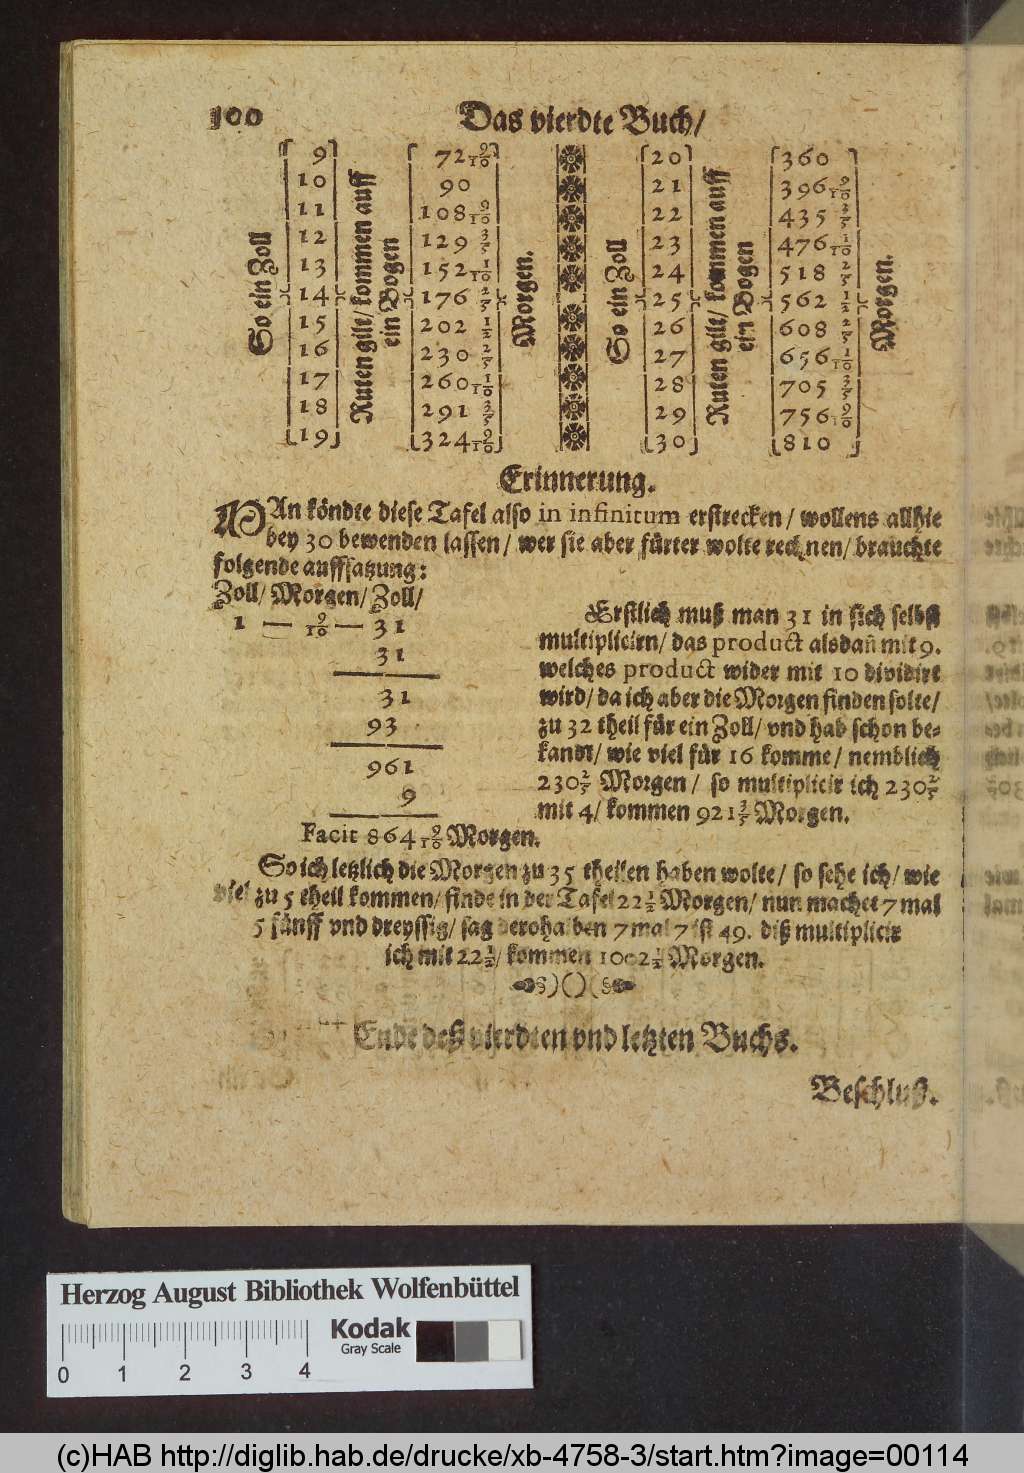 100 Das vierdte Buch/
So ein Zoll
9
10
11
12
13
14
15
16
17
18
19
Ruten gilt/ kommen auff
ein Bogen
72 9/10
90
108 9/10
129 3/5
152 1/10
176 2/5
202 1/2
230 2/5
260 1/10
291 3/5
324 9/10
Morgen.
So ein Zoll
20
21
22
23
24
25
26
27
28
29
30
Ruten gilt/ kommen auff
ein Bogen
360
396 9/10
435 3/5
476 1/10
518 2/5
562 1/2
608 2/5
656 1/10
705 3/5
756 9/10
810
Morgen.
Erinnerung.
MAn köndte diese Tafel also in infinitum erstrecken / wollens allhie
bey 30 bewenden lassen / wer sie aber fürter wolte rechnen/ brauchte
folgende auffsatzung:
Zoll/ Morgen/ Zoll/
1 — 9/10 — 31
31
31
93
961
9
Facit 864 9/10 Morgen.
Erstlich muß man 31 in sich selbst
multiplicirn/ das product alsdañ mit 9.
welches product wider mit 10 dividirt
wird/ da ich aber die Morgen finden solte/
zu 32 theil für ein Zoll/ vnd hab schon be-
kandt/ wie viel für 16 komme/ nemblich
230 2/5 Morgen / so multiplicir ich 230 2/5
mit 4/ kommen 921 3/5 Morgen.
So ich letzlich die Morgen zu 35 theilen haben wolte/ so sehe ich/ wie
viel zu 5 theil kommen/ finde in der Tafel 22 1/2 Morgen/ nun machet 7 mal
5 fünff vnd dreyssig/ sag derohalben 7 mal 7 ist 49. diß multiplicir
ich mit 22 1/2/ kommen 1002 1/2 Morgen.
Ende deß vierdten vnd letzten Buchs.
Beschluß.
Herzog August Bibliothek Wolfenbüttel
Kodak
Gray Scale
0 1 2 3 4
(c)HAB http://diglib.hab.de/drucke/xb-4758-3/start.htm?image=00114